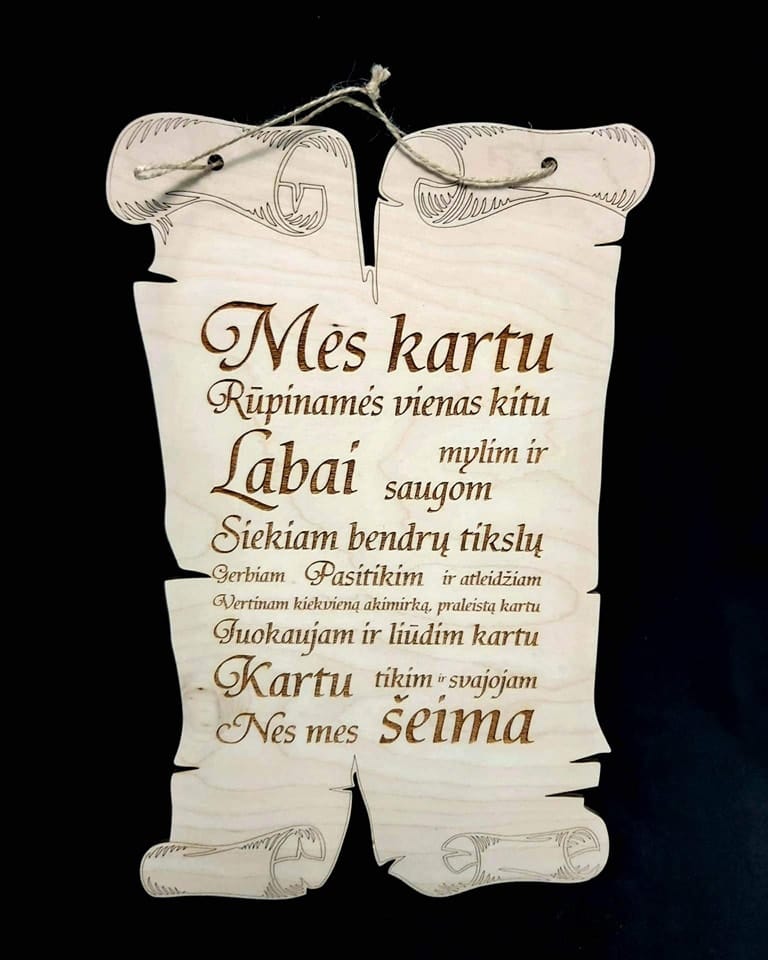 Mės kartu
Rūpinamės vienas kitu
Labai mylim ir
saugom
Siekiam bendrų tikslų
Gerbiam Pasitikim ir atleidžiam
Vertinam kiekvieną akimirką, praleistą kartu
Juokaujam ir liūdim kartu
Kartu tikim ir svajojam
Nes mes šeima